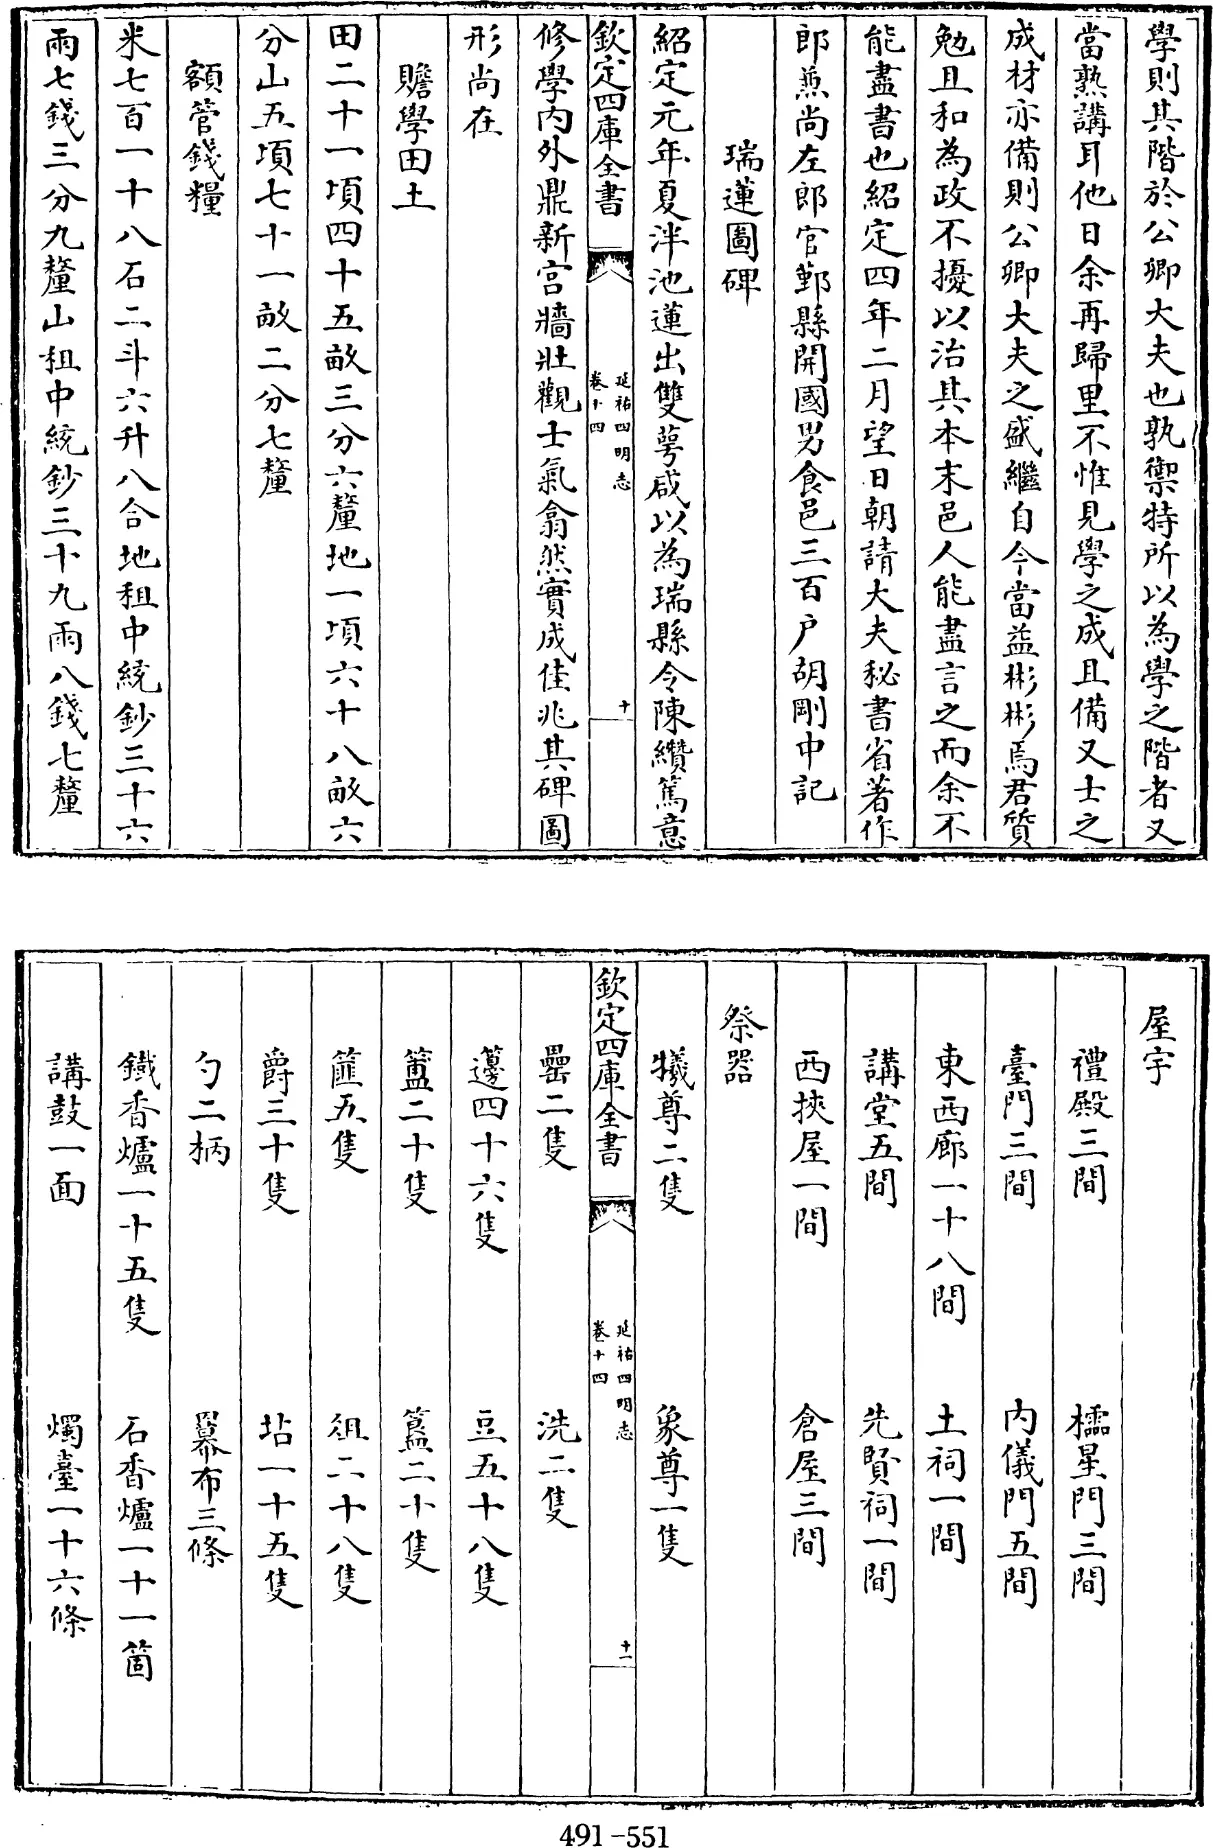 學則其階於公卿大夫也孰禦特所以為學之階者又
當熟講耳他日余再歸里不惟見學之成且備又士之
成材亦備則公卿大夫之盛繼自今當益彬彬焉君質
勉且和為政不擾以治其本末邑人能盡言之而余不
能盡書也紹定四年二月望日朝請大夫秘書省著作
郎兼尚左郎官鄞縣開國男食邑三百户胡剛中記
瑞蓮圖碑
紹定元年夏泮池蓮出雙萼咸以為瑞縣令陳纘篤意
欽定四庫全書
延祐四明志
卷十四
十
修學内外鼎新宫牆壯觀士氣翕然實成佳兆其碑圖
形尚在
贍學田土
田二十一頃四十五畝三分六釐地一頃六十八畝六
分山五頃七十一畝二分七釐
額管錢糧
米七百一十八石二斗六升八合地租中統鈔三十六
兩七錢三分九釐山租中統鈔三十九兩八錢七釐
屋宇
禮殿三間 櫺星門三間
臺門三間 内儀門五間
東西廊一十八間 土祠一間
講堂五間 先賢祠一間
西挾屋一間 倉屋三間
祭器
犧尊二隻 象尊一隻
欽定四庫全書
延祐四明志
卷十四
十一
罍二隻 洗二隻
籩四十六隻 豆五十八隻
簠二十隻 簋二十隻
篚五隻 俎二十八隻
爵三十隻 坫一十五隻
勺二柄 羃布三條
鐵香爐一十五隻 石香爐一十一箇
講鼓一面 燭臺一十六條
491-551